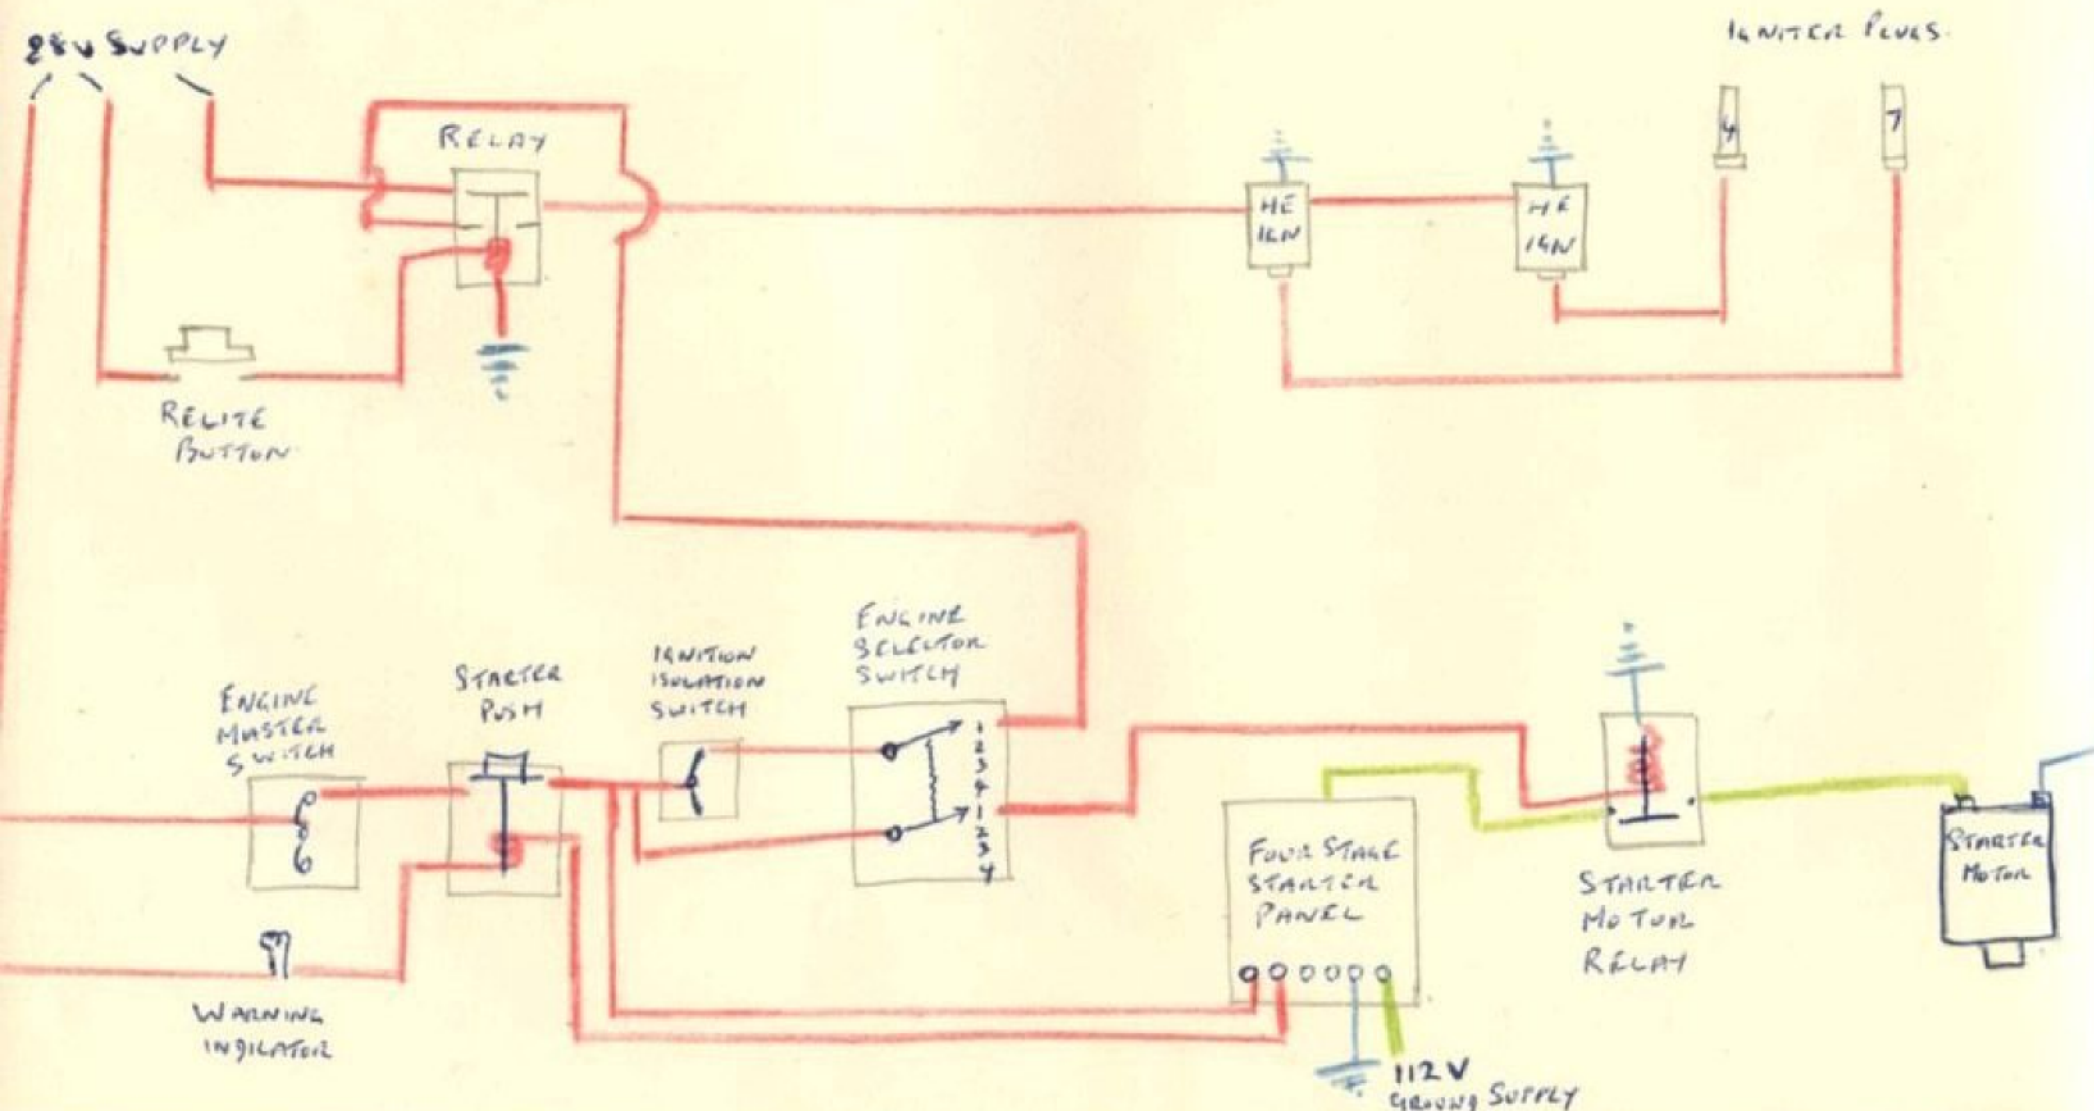 28V SUPPLY
IGNITER PLUGS.
RELAY
4
7
HE
IGN
HE
IGN
RELITE
BUTTON
ENGINE
SELECTOR
SWITCH
IGNITION
ISOLATION
SWITCH
STARTER
PUSH
ENGINE
MASTER
SWITCH
1
2
3
4
1
2
3
4
FOUR STAGE
STARTER
PANEL
STARTER
MOTOR
RELAY
STARTER
MOTOR
WARNING
INDICATOR
112V
GROUND SUPPLY